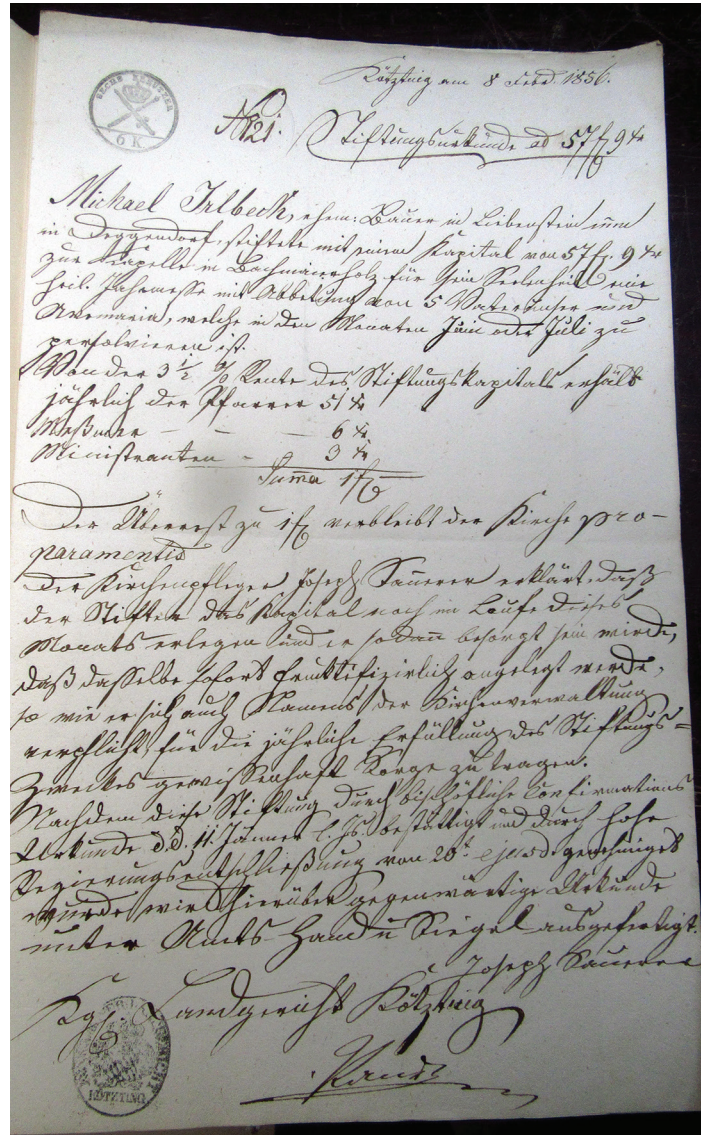 Kötzting am 8 Febr. 1856.
SECHS KREUTZER
6 K
No 21.
Stiftungsurkunde ad 57 f 9 xr
Michael Irlbeck, ehem: Bauer in Liebenstein nun
in Deggendorf, stiftete mit einem Kapital von 57 f. 9 xr
zur Kapelle in Bachmaierholz für sein Seelenheil eine
heil. Jahrmesse mit Abbetung von 5 Vaterunser und
Avemaria, welche in den Monaten Juni oder Juli zu
persolvieren ist.
Von der 3 1/2 % Rente des Stiftungskapitals erhält
jährlich der Pfarrer 51 xr
Meßner – – – 6 xr
Ministranten – 3 xr
Suma 1 f
Der Überrest zu 1 f verbleibt der Kirche pro-
paramentis
Der Kirchenpfleger Joseph Sauerer erklärt daß
der Stifter das Kapital noch im Laufe dieses
Monats erlegen und er sodann besorgt sein wird,
daß dasselbe sofort fruktifizirlich angelegt werde,
so wie er sich auch Namens der Kirchenverwaltung
verpflicht, für die jährliche Erfüllung des Stiftungs=
Zweckes gewissenhaft Sorge zu tragen.
Nachdem diese Stiftung durch bischöfliche Confirmations
Urkunde d.d. 11. Jänner l. Js. bestättigt und durch hohe
Regierungsentschließung von 20t. ejusd. genehmiget
wurde, wird hierüber gegenwärtige Urkunde
unter Amts Hand u Siegel ausgefertigt.
Joseph Sauerer
Kgl. Landgericht Kötzting
KÖTZTING